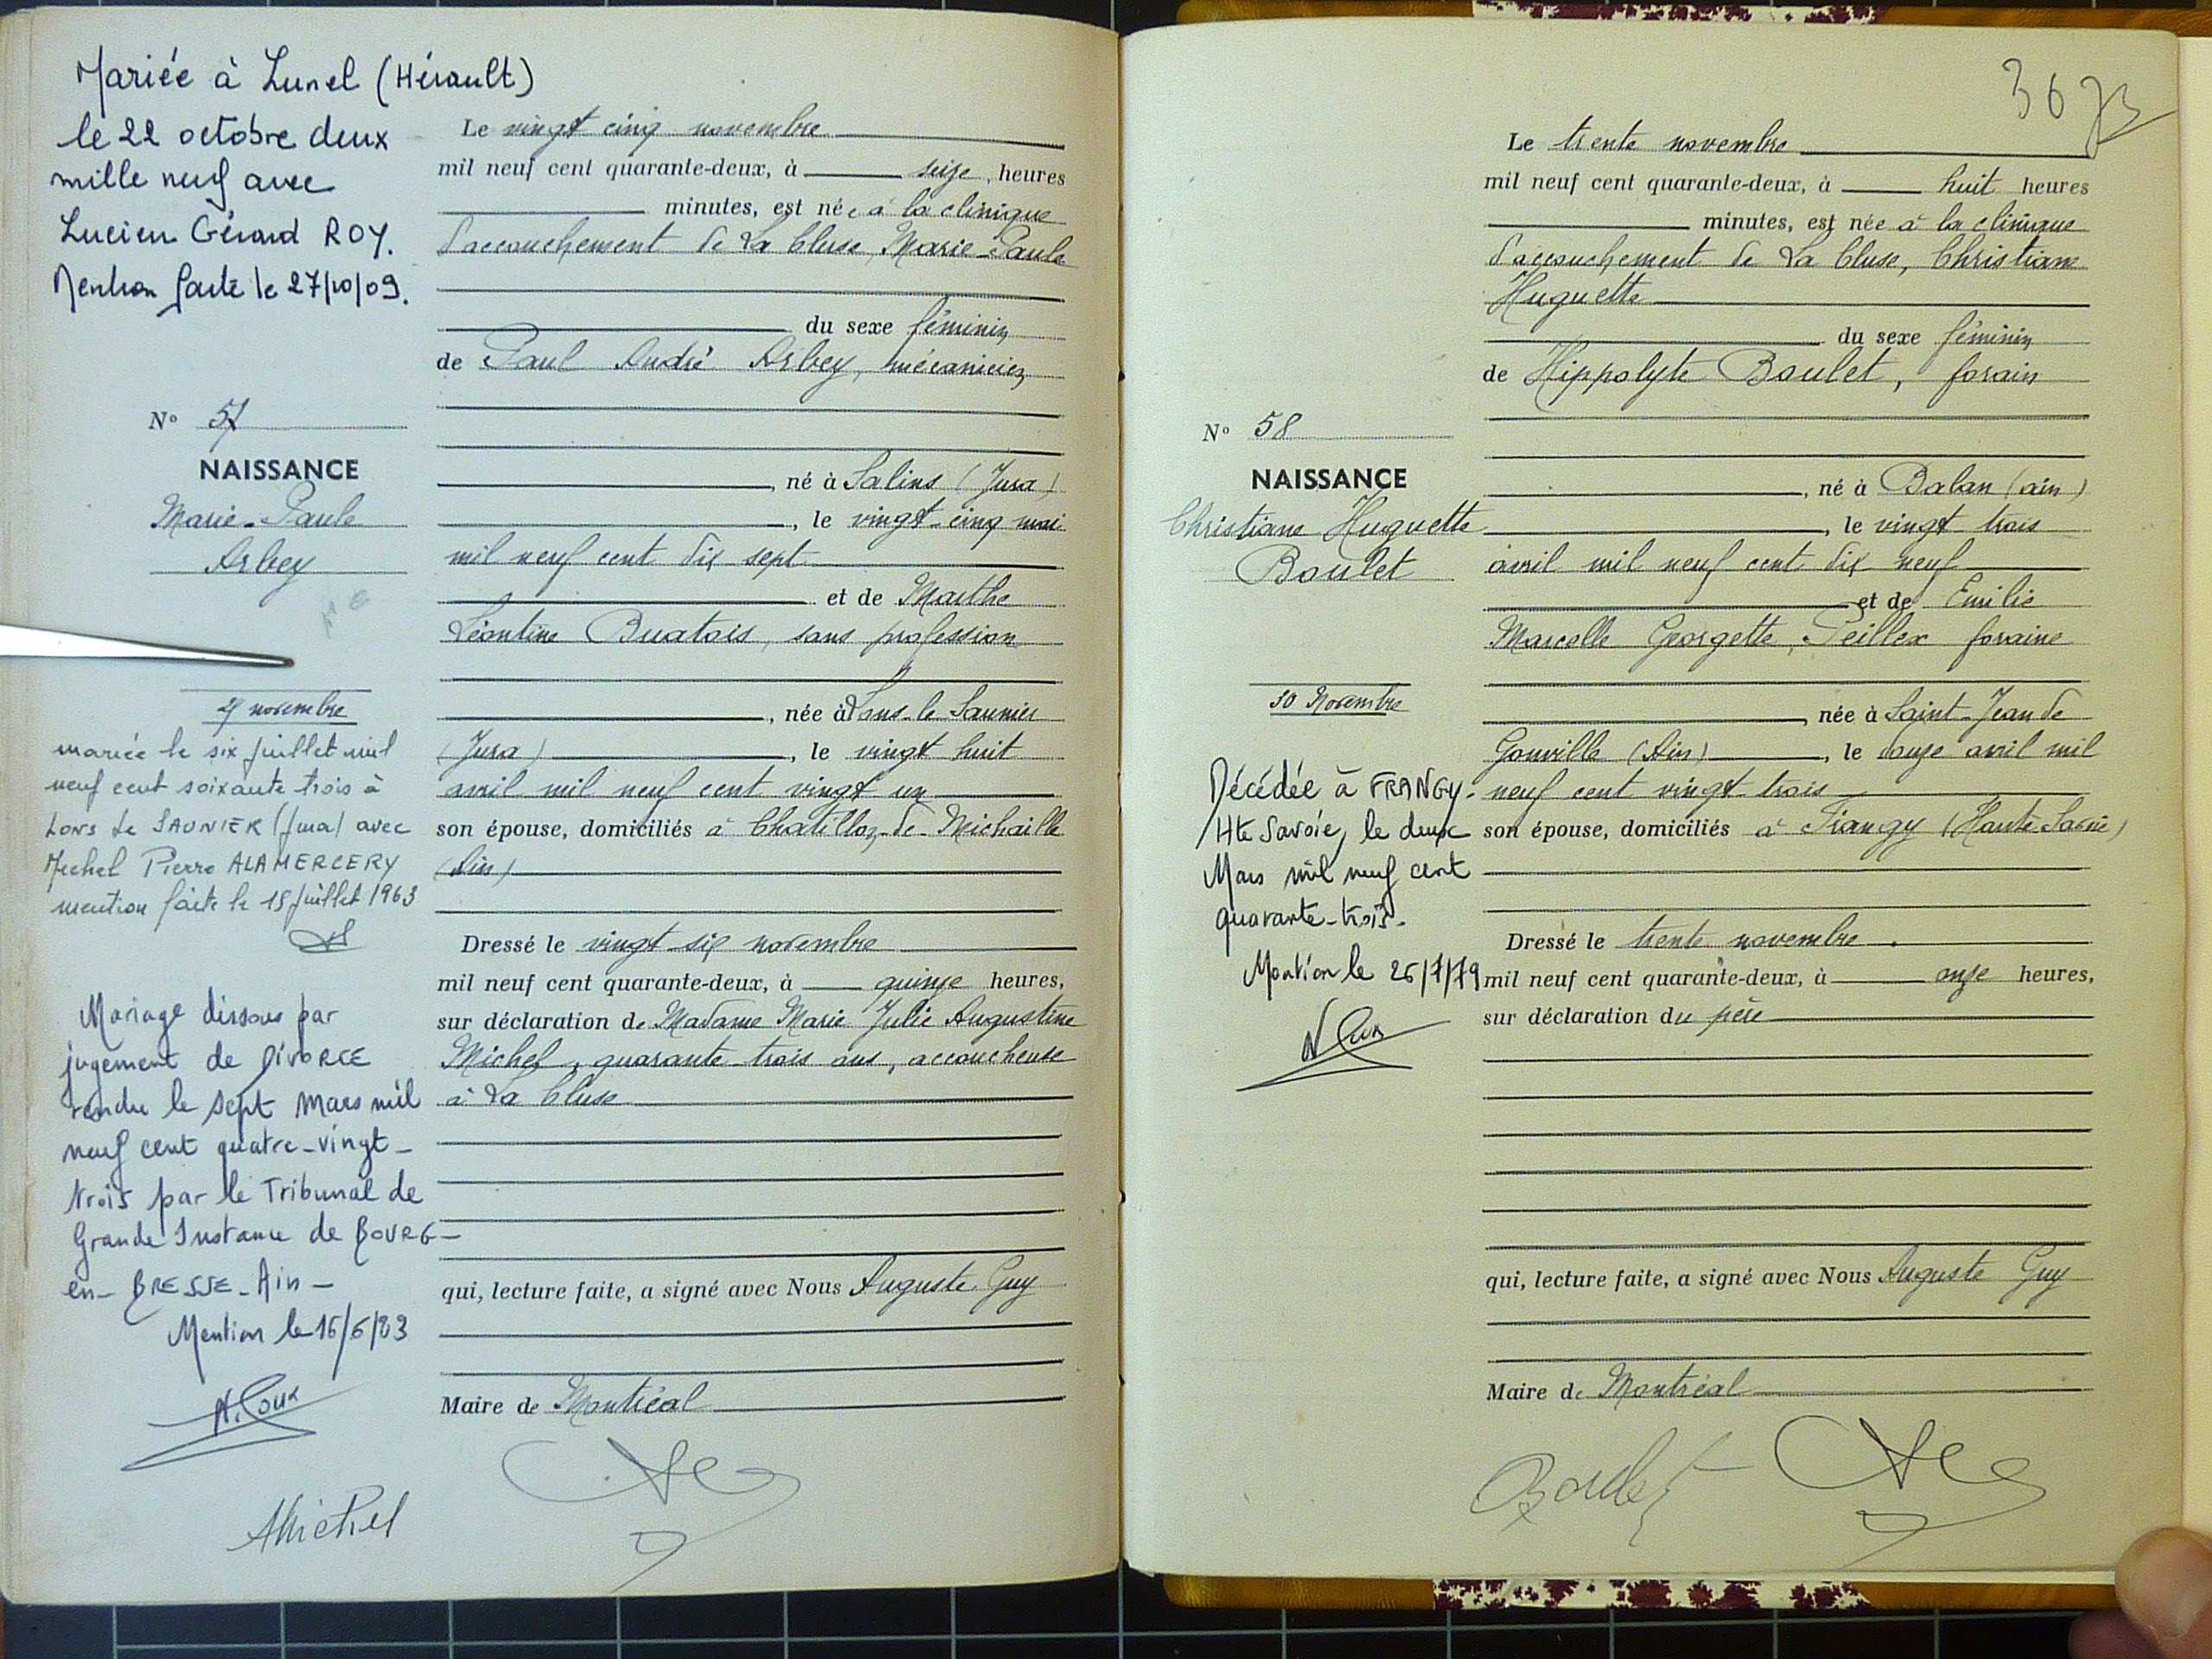 Mariée à Lunel (Hérault)
le 22 octobre deux
mille neuf avec
Lucien Gérard ROY.
Mention faite le 27/10/09.
N° 57
NAISSANCE
Marie-Paule
Arbey
novembre
mariée le six juillet mil
neuf cent soixante trois à
Lons le SAUNIER (Jura) avec
Michel Pierre ALAMERCERY
mention faite le 15 juillet 1963
Mariage dissous par
jugement de DIVORCE
rendu le sept Mars mil
neuf cent quatre-vingt-
trois par le Tribunal de
Grande Instance de BOURG-
en-BRESSE-Ain-
Mention le 16/6/83
Le vingt cinq novembre
mil neuf cent quarante-deux, à seize heures
minutes, est née à la clinique
d'accouchement de La Cluse, Marie-Paule
du sexe féminin
de Paul André Arbey, mécanicien
né à Salins (Jura)
, le vingt-cinq mai
mil neuf cent dix sept
et de Marthe
Léontine Buatois, sans profession
, née à Lons-le-Saunier
(Jura), le vingt huit
avril mil neuf cent vingt un
son épouse, domiciliés à Chatillon-de-Michaille
(Ain)
Dressé le vingt-six novembre
mil neuf cent quarante-deux, à quinze heures,
sur déclaration de Madame Marie Julie Augustine
Michel, quarante-trois ans, accoucheuse
à La Cluse
qui, lecture faite, a signé avec Nous Auguste Guy
Maire de Montréal
AMichel
36
N° 58
NAISSANCE
Christiane Huguette
Boulet
30 Novembre
Décédée à FRANGY-
Hte Savoie, le deux
Mars mil neuf cent
quarante-trois-
Mention le 26/7/79
Le trente novembre
mil neuf cent quarante-deux, à huit heures
minutes, est née à la clinique
d'accouchement de La Cluse, Christiane
Huguette
du sexe féminin
de Hippolyte Boulet, forain
, né à Balan (ain)
, le vingt trois
avril mil neuf cent dix neuf
et de Emilie
Marcelle Georgette, Peillex foraine
, née à Saint-Jean de
Gonville (Ain), le douze avril mil
neuf cent vingt trois
son épouse, domiciliés à Frangy (Haute Savoie)
Dressé le trente novembre.
mil neuf cent quarante-deux, à onze heures,
sur déclaration du père
qui, lecture faite, a signé avec Nous Auguste Guy
Maire de Montréal
Boulet